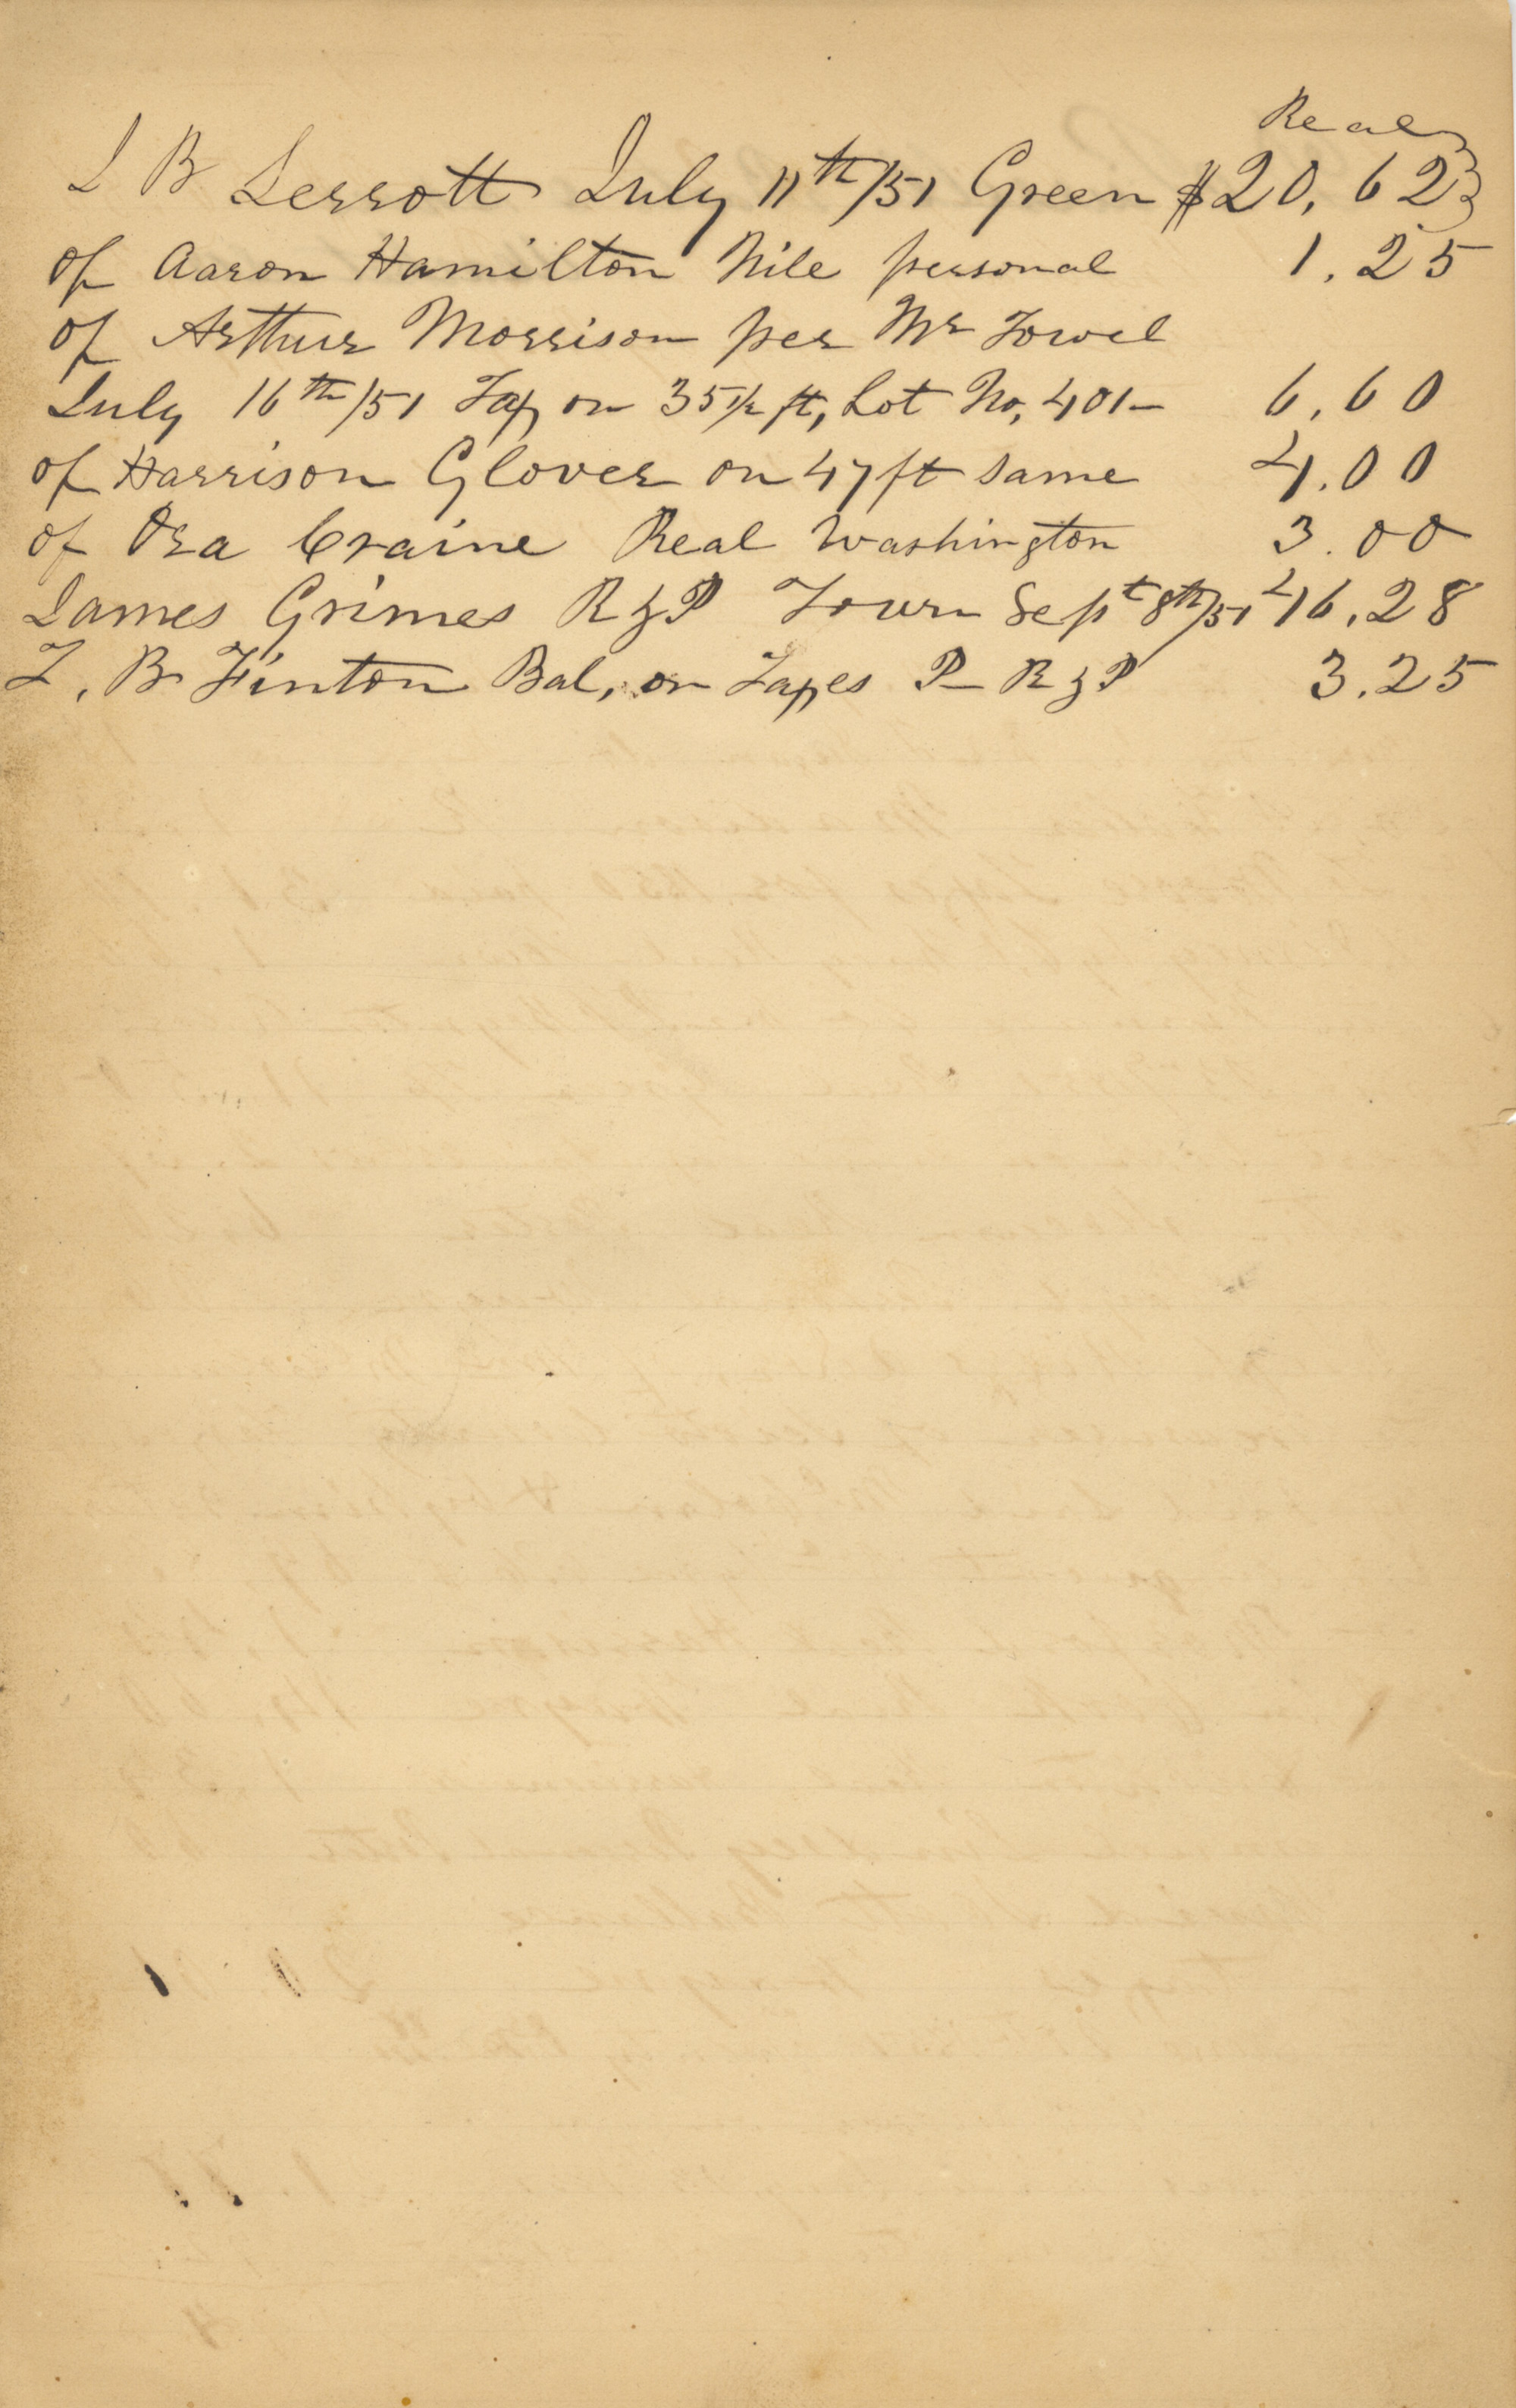 Real
J B Jerrott July 11th/51 Green $20,62
of Aaron Hamilton Nile personal 1.25
of Arthur Morrison per Mr Towel
July 16th/51 Tax on 35 1/2 ft, Lot No, 401– 6,60
of Harrison Glover on 47 ft same 4.00
of Ora Craine Real Washington 3.00
James Grimes R & P Town Sept 8th/51 46.28
T, B Finton Bal, on Taxes P– R & P 3.25